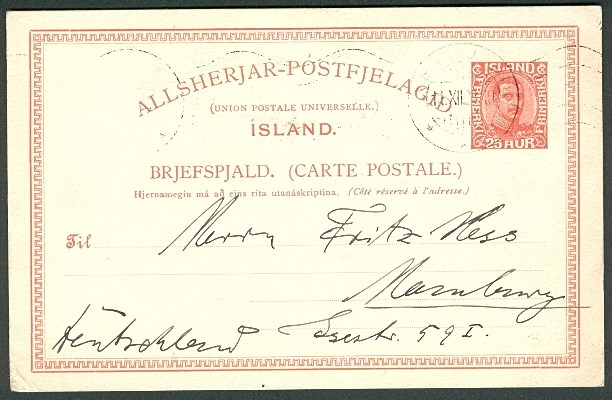 ALLSHERJAR-POSTFJELAGID
(UNION POSTALE UNIVERSELLE.)
ÍSLAND.
BRJEFSPJALD. (CARTE POSTALE.)
Hjernamegin má að eins rita utanáskriptina. (Côté réservé à l'adresse.)
ÍSLAND
BRJEFSPJALD
FRIMERKI
25 AUR
XII
Til Herrn Fritz Hess
Hamburg
Deutschland 59 I.